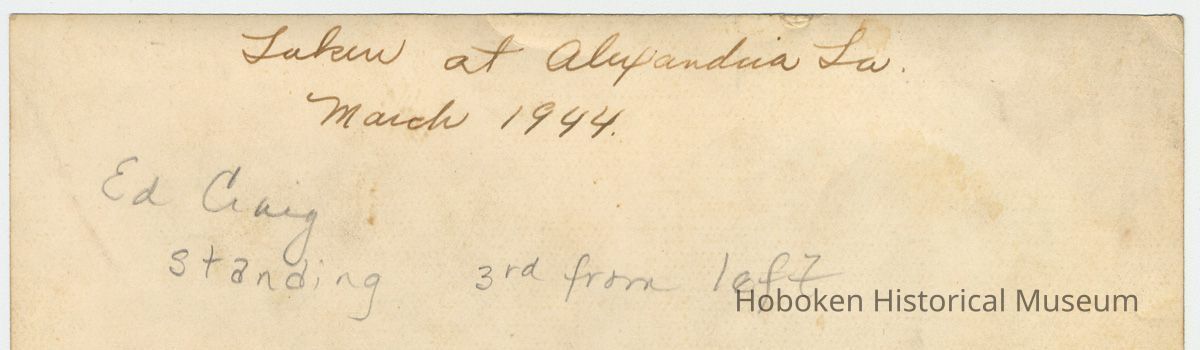 Taken at Alexandria La.
March 1944.
Ed Craig
standing 3rd from left
Hoboken Historical Museum